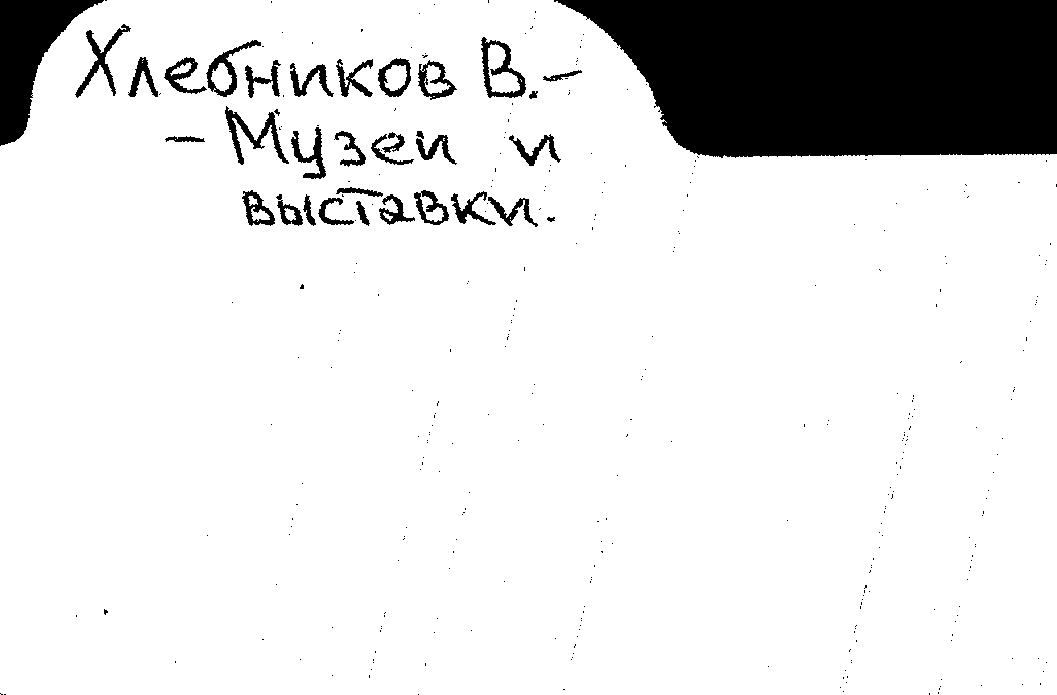 Хлебников В.–
– Музеи и
выставки.